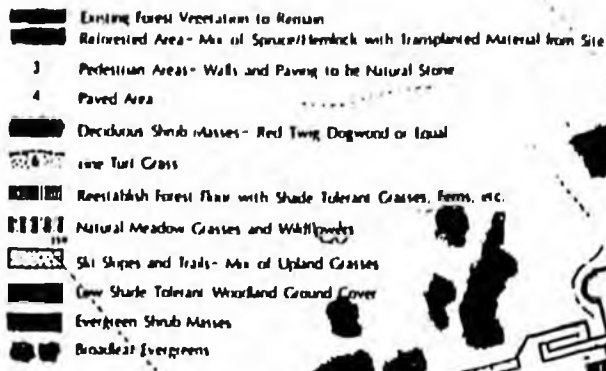 Existing Forest Vegetation to Remain
Reforested Area- Mix of Spruce/Hemlock with Transplanted Material from Site
3 Pedestrian Areas- Walls and Paving to be Natural Stone
4 Paved Area
Deciduous Shrub Masses- Red Twig Dogwood or Equal
Turf Grass
Reestablish Forest Floor with Shade Tolerant Grasses, Ferns, etc.
Natural Meadow Grasses and Wildflowers
Ski Slopes and Trails- Mix of Upland Grasses
Low Shade Tolerant Woodland Ground Cover
Evergreen Shrub Masses
Broadleaf Evergreens